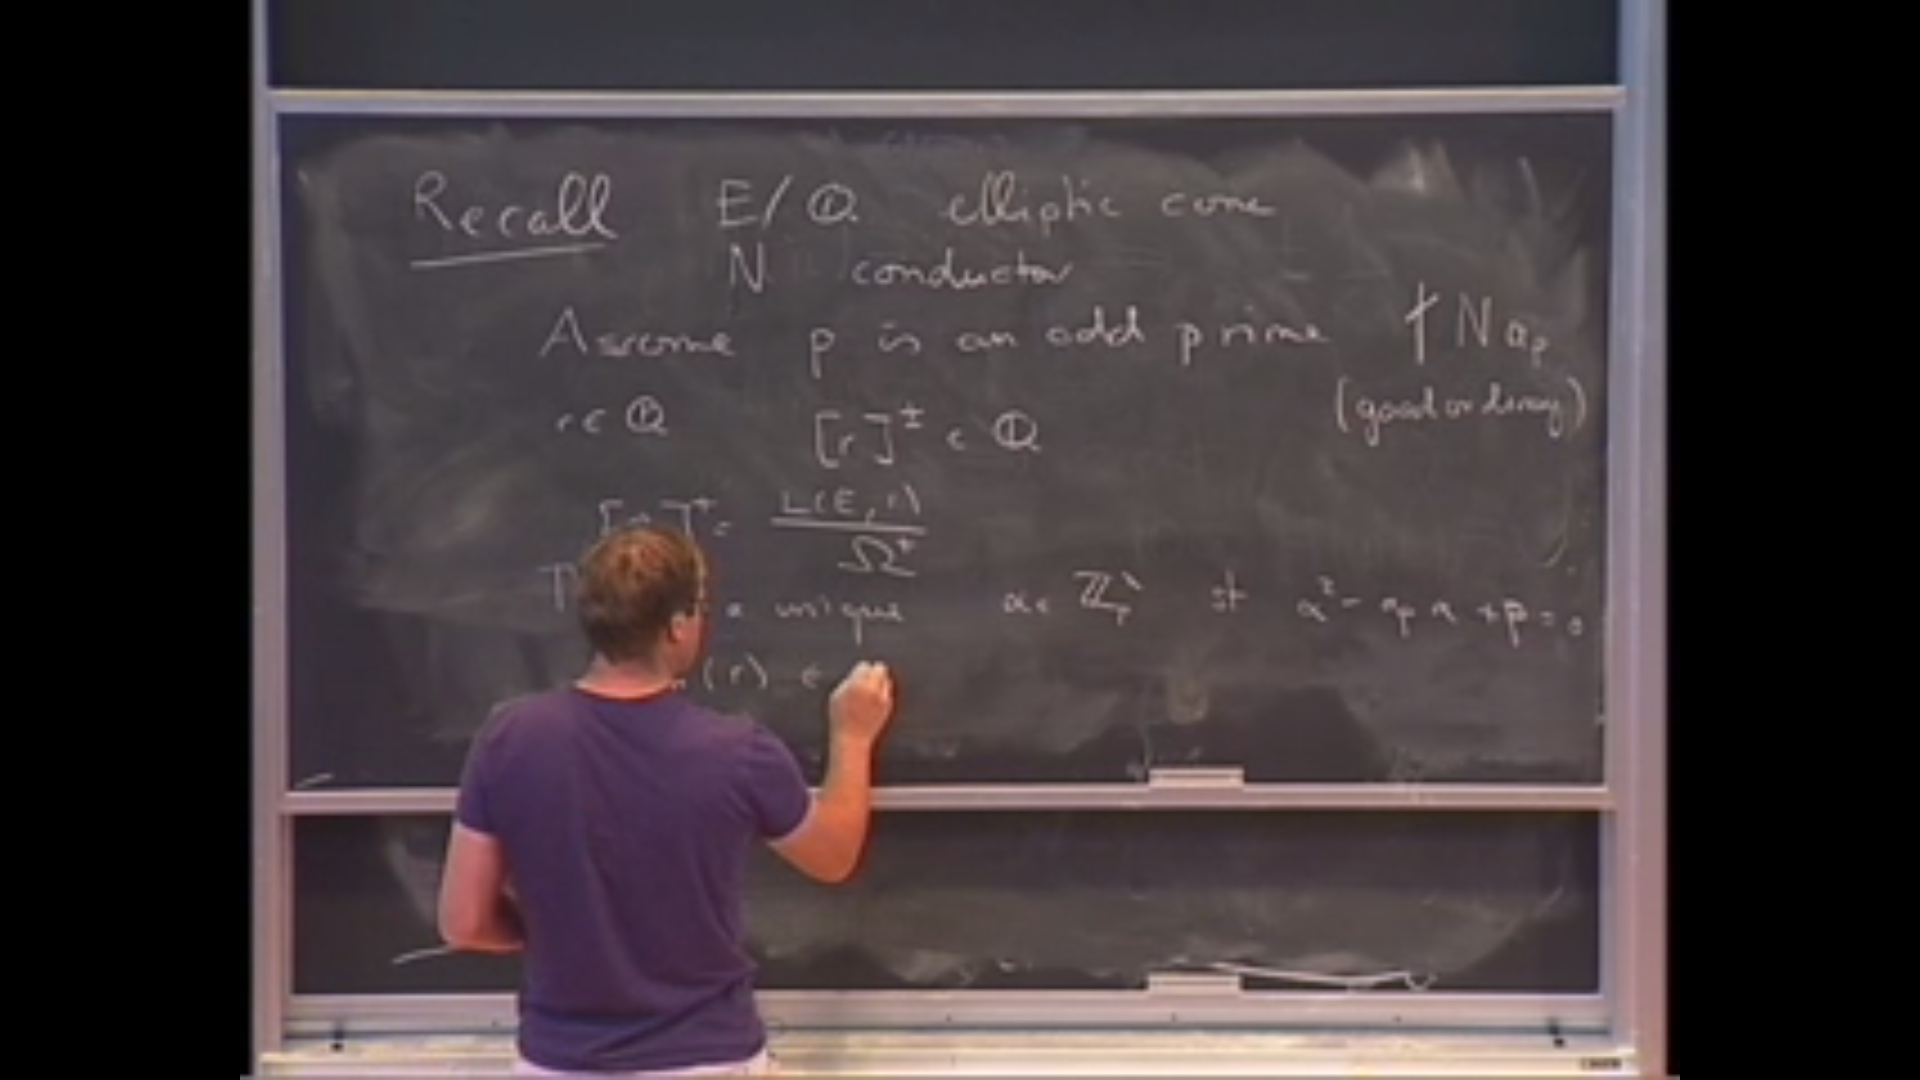 Recall E/ℚ elliptic curve
N conductor
Assume p is an odd prime ∤ N a_p
(good ordinary)
r ∈ ℚ [r]^± ∈ ℚ
]^+ = L(E,1) / Ω^+
a unique α ∈ ℤ_p^× st α² - a_p α + p = 0
(r) ∈